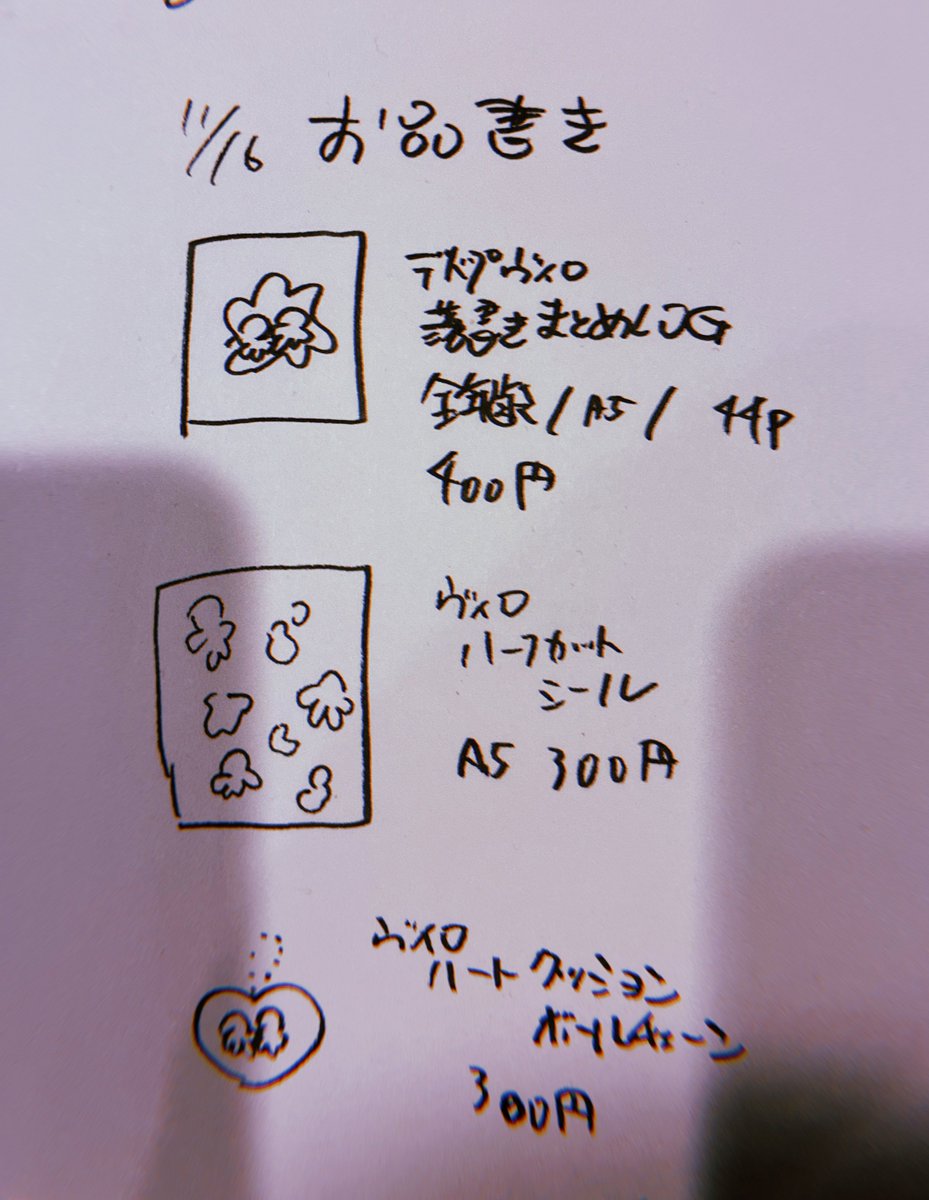 11/16 お品書き
デドプヴィロ
落書きまとめLOG
全年齢 / A5 / 44p
400円
ヴィロ
ハーフカット
シール
A5 300円
ヴィロ
ハート クッション
ボールチェーン
300円